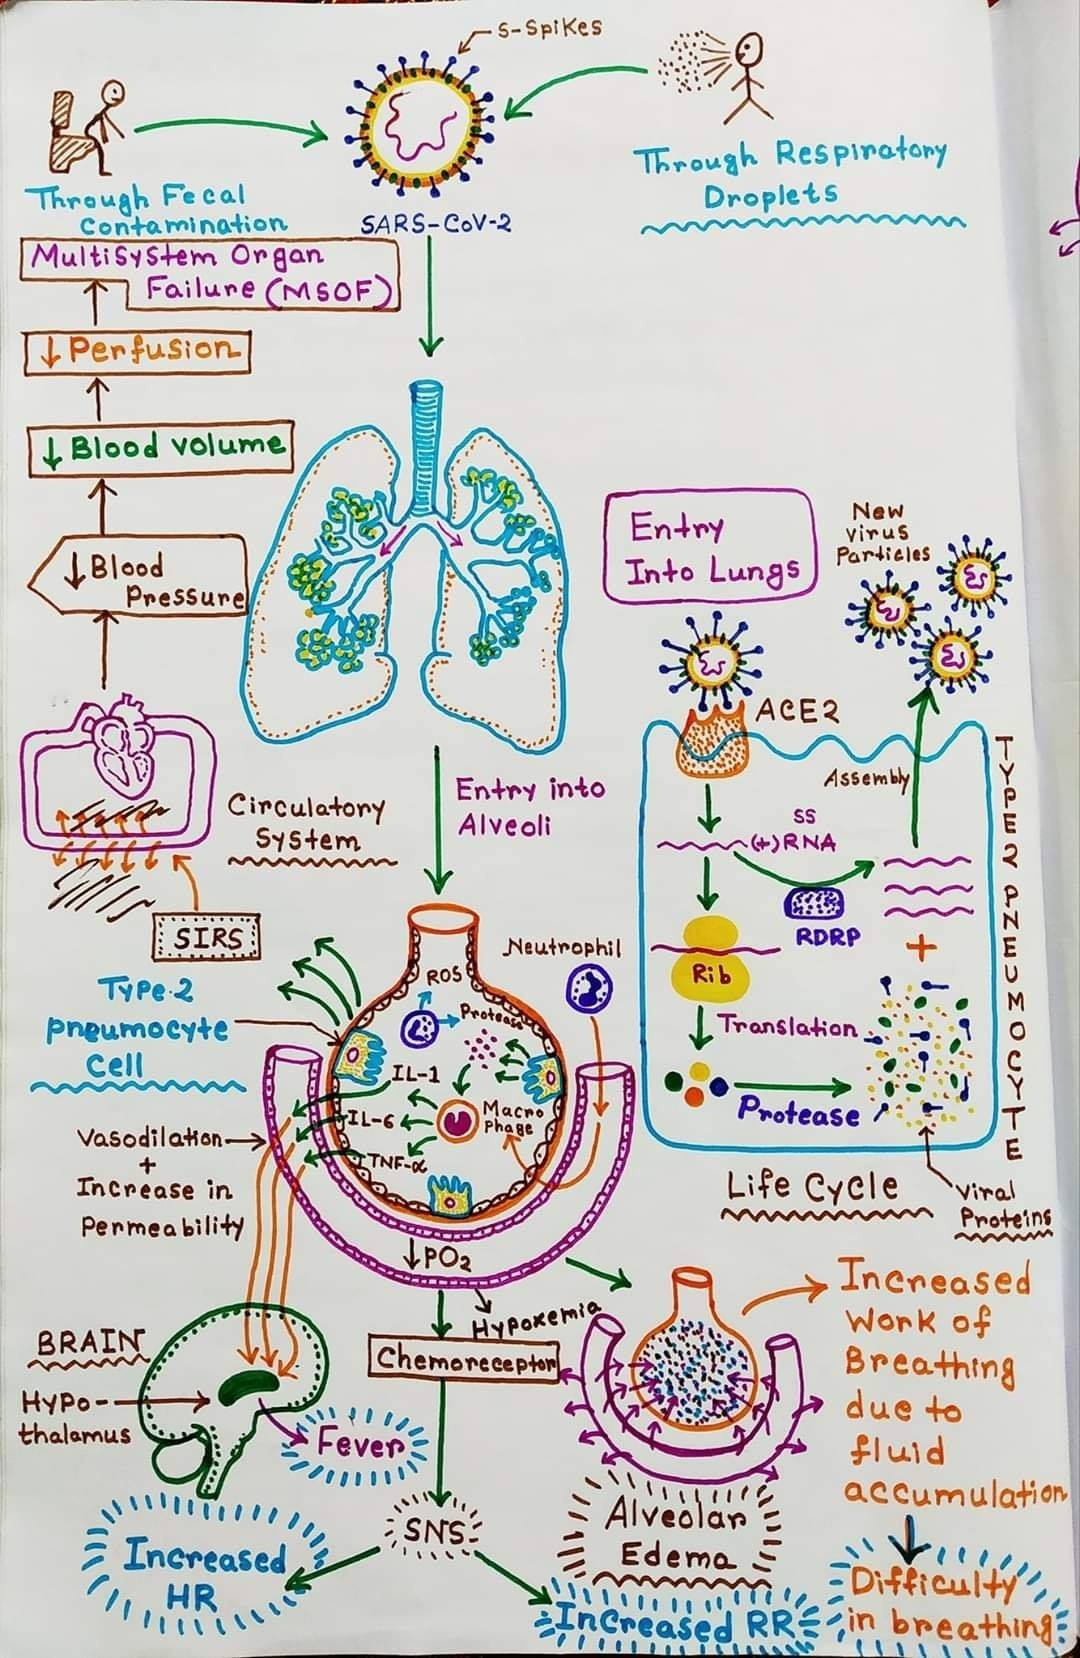 S-Spikes
Through Fecal
Contamination
SARS-CoV-2
Through Respiratory
Droplets
Multisystem Organ
Failure (MSOF)
↓ Perfusion
↓ Blood volume
↓ Blood
Pressure
Circulatory
System
SIRS
Entry into
Alveoli
Entry
Into Lungs
New
virus
Particles
ACE2
Assembly
SS
(+)RNA
RDRP
+
Rib
Translation
Protease
TYPE 2 PNEUMOCYTE
Life Cycle
Viral
Proteins
Type-2
pneumocyte
Cell
ROS
Protease
Neutrophil
IL-1
IL-6
TNF-α
Macro
phage
Vasodilation
+
Increase in
Permeability
↓PO2
Hypoxemia
Chemoreceptor
BRAIN
Hypo-
thalamus
Fever
SNS
Increased
HR
Increased RR
Alveolar
Edema
Increased
Work of
Breathing
due to
fluid
accumulation
Difficulty
in breathing